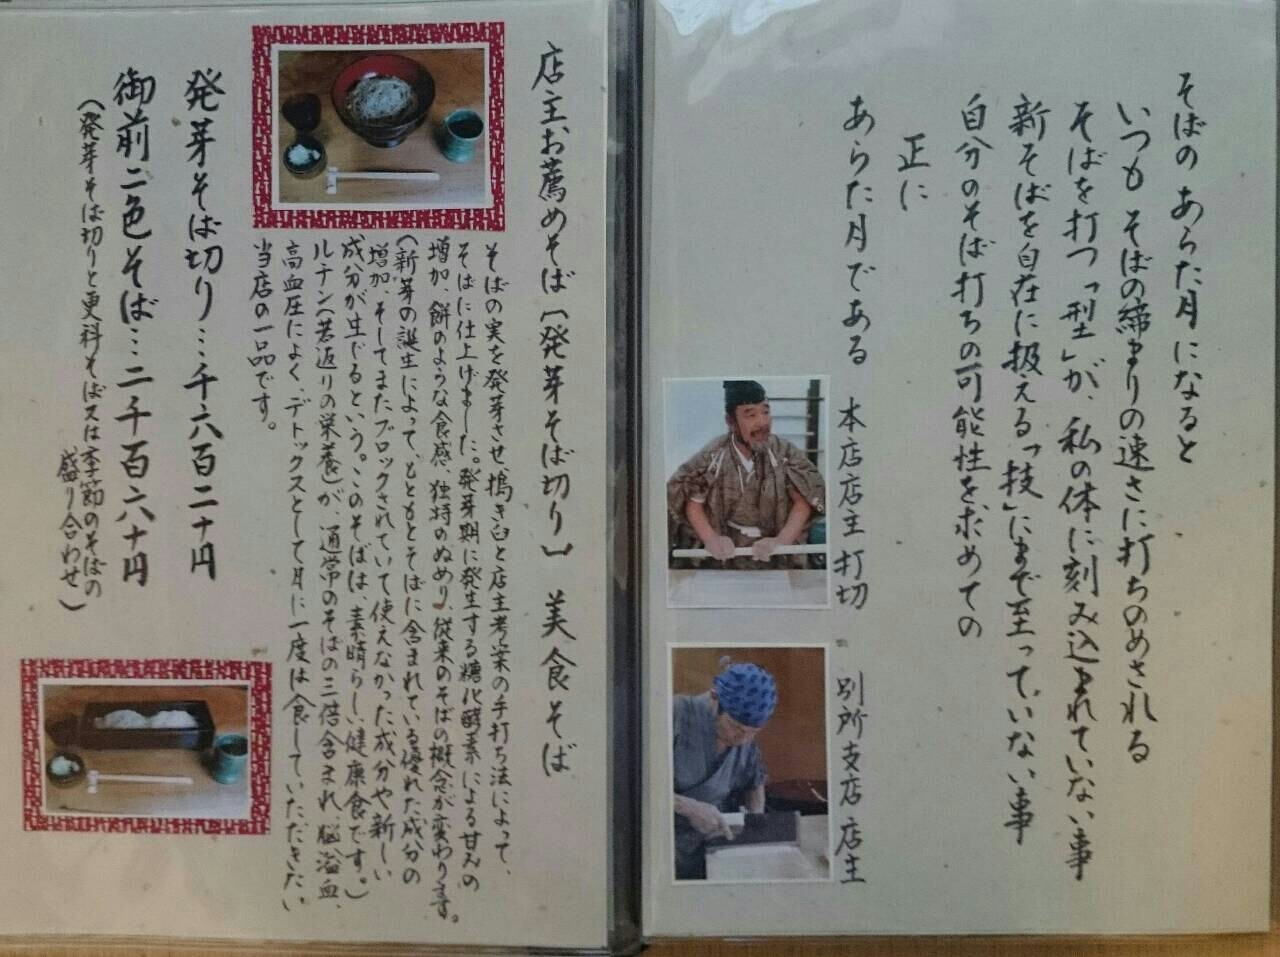 そばの あらた月になると
いつも そばの締まりの速さに打ちのめされる
そばを打つ「型」が、私の体に刻み込まれていない事
新そばを自在に扱える「技」にまで至っていない事
自分のそば打ちの可能性を求めての
正に
あらた月である
本店店主 打切
別所支店 店主
店主お薦めそば〔発芽そば切り〕 美食そば
そばの実を発芽させ、搗き臼と店主考案の手打ち法によって、
そばに仕上げました。発芽期に発生する糖化酵素による甘みの
増加、餅のような食感、独特のぬめり、従来のそばの概念が変わります。
(新芽の誕生によって、もともとそばに含まれている優れた成分の
増加、そしてまたブロックされていて使えなかった成分や新しい
成分が生じるという。このそばは、素晴らしい健康食です。)
ルチン(若返りの栄養)が、通常のそばの三倍含まれ、脳溢血、
高血圧によく、デトックスとして月に一度は食していただきたい
当店の一品です。
発芽そば切り…千六百二十円
御前二色そば…二千百六十円
(発芽そば切りと更科そば又は季節のそばの
盛り合わせ)